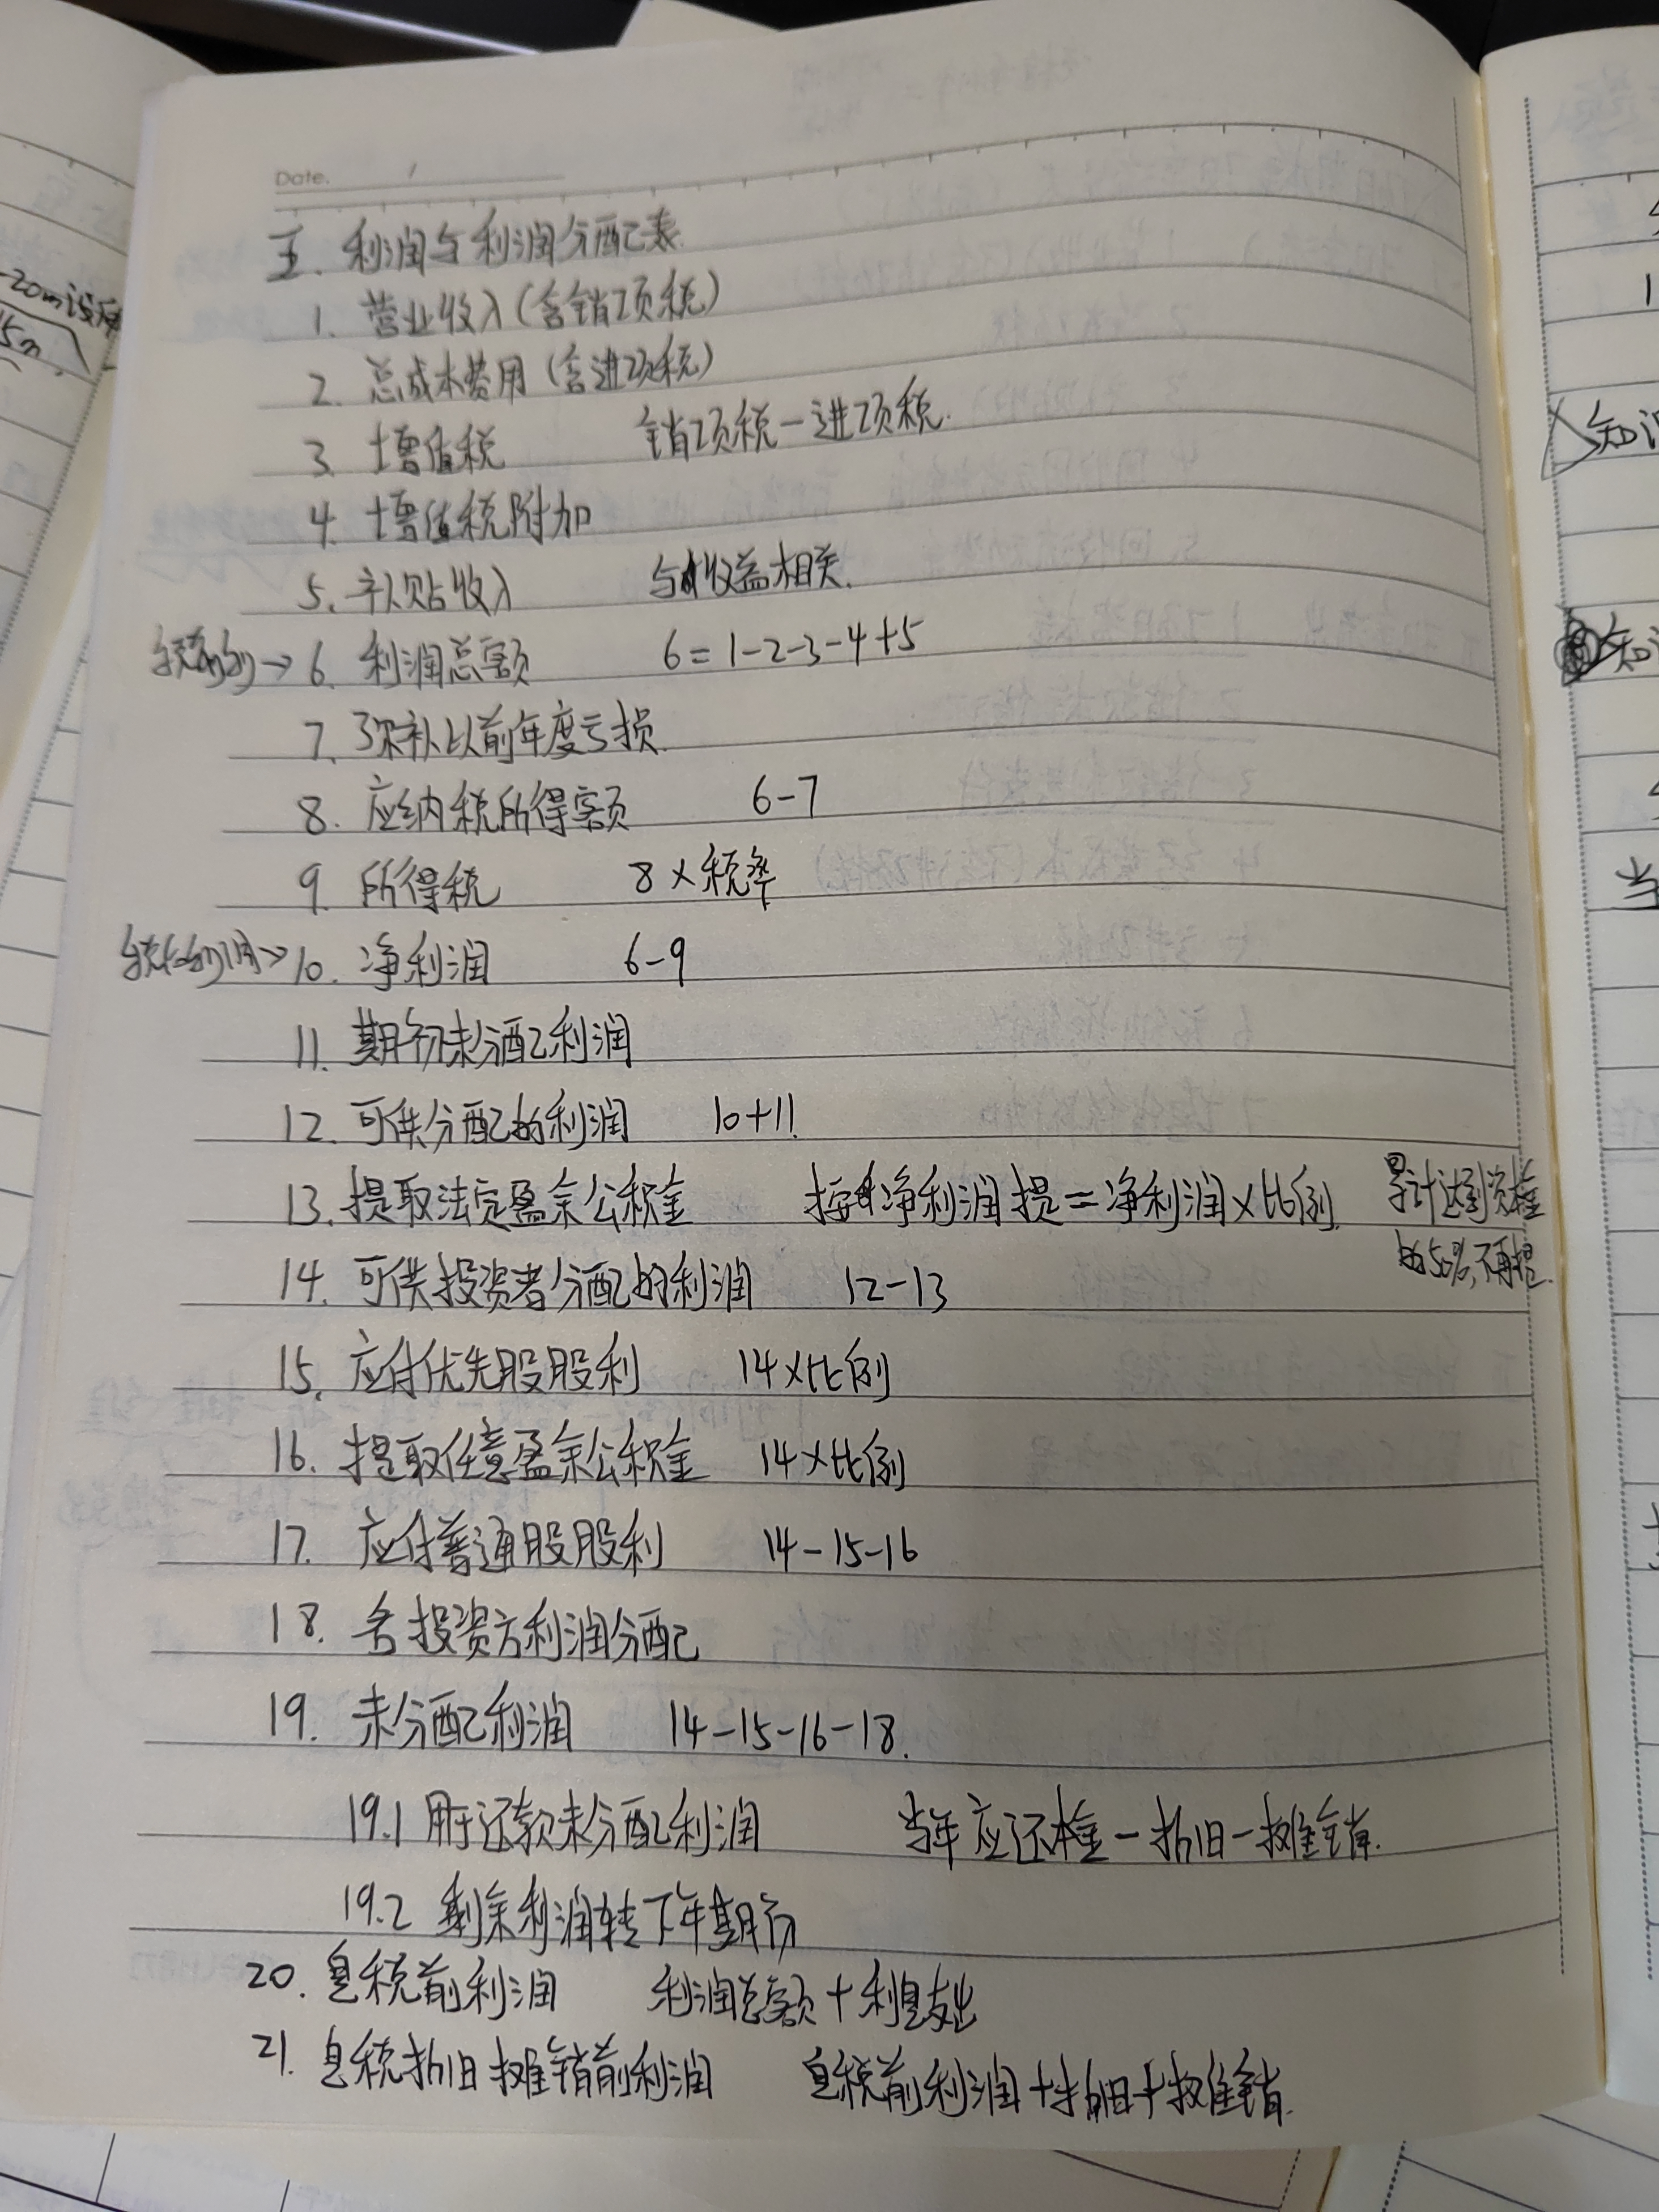 Date.
五. 利润与利润分配表
1. 营业收入(含销项税)
2. 总成本费用(含进项税)
3. 增值税 销项税-进项税.
4. 增值税附加
5. 补贴收入 与收益相关.
→ 6. 利润总额 6=1-2-3-4+5
7. 弥补以前年度亏损.
8. 应纳税所得额 6-7
9. 所得税 8×税率
税后利润→ 10. 净利润 6-9
11. 期初未分配利润
12. 可供分配的利润 10+11.
13. 提取法定盈余公积金 按净利润提=净利润×比例. 累计达到资本金
的50%,不再提.
14. 可供投资者分配的利润 12-13
15. 应付优先股股利 14×比例
16. 提取任意盈余公积金 14×比例
17. 应付普通股股利 14-15-16
18. 各投资方利润分配
19. 未分配利润 14-15-16-18.
19.1 用于还款未分配利润 当年应还本金-折旧-摊销.
19.2 剩余利润转下年期初
20. 息税前利润 利润总额+利息支出
21. 息税折旧摊销前利润 息税前利润+折旧+摊销.
-20m
15m
知
知